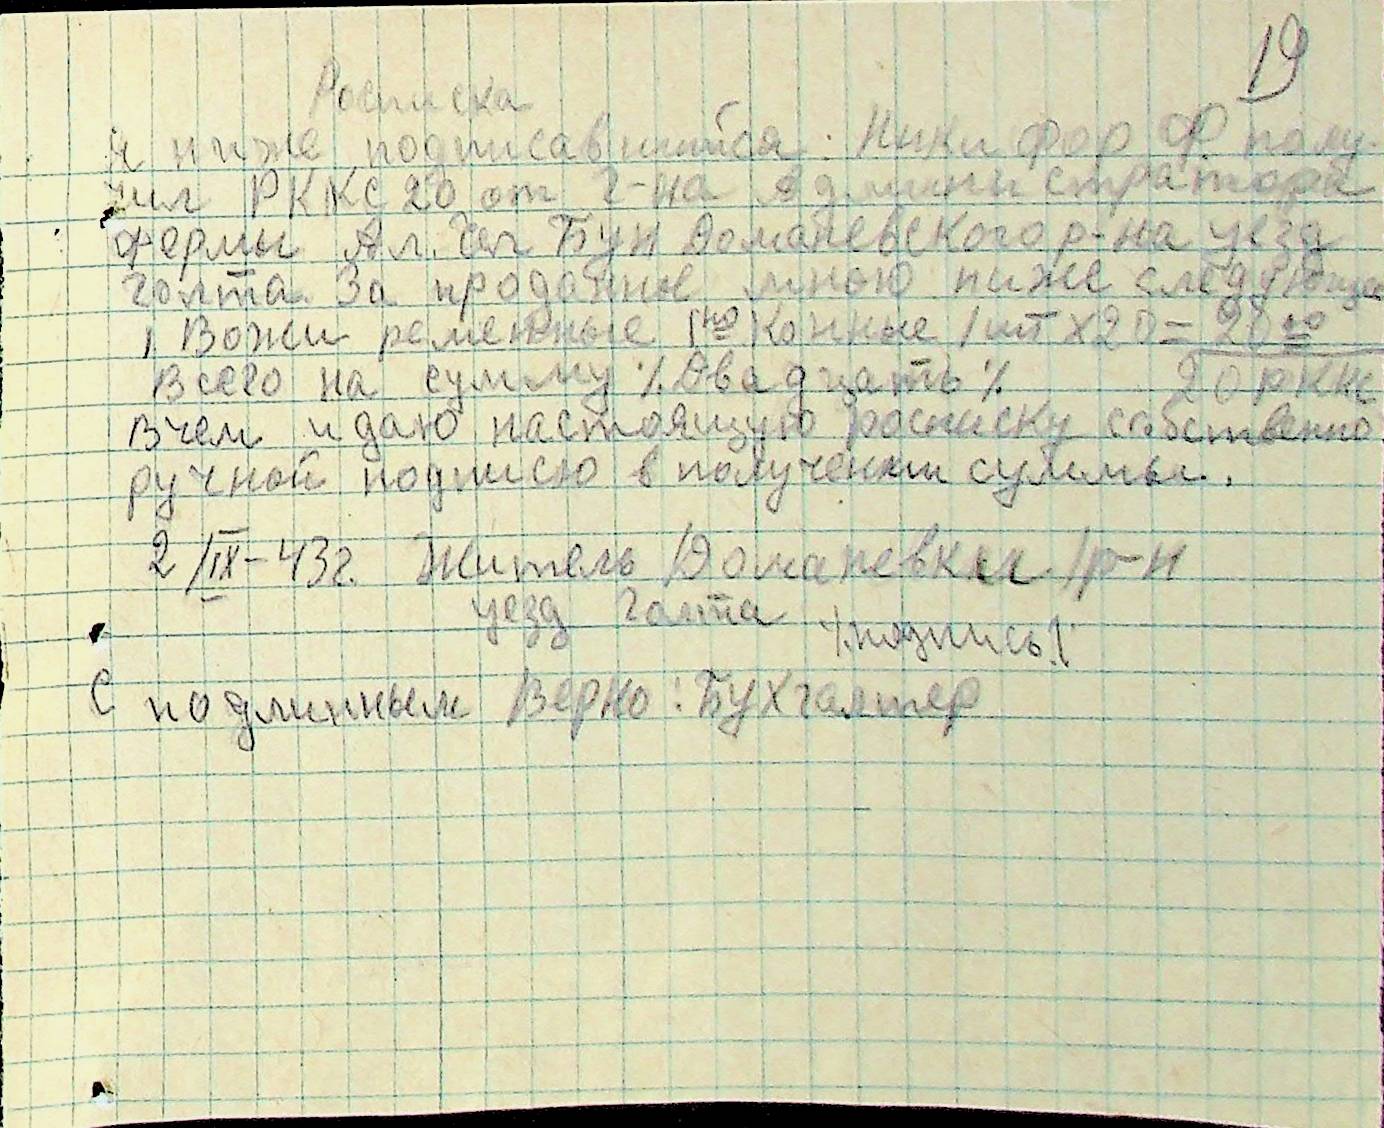 19
Росписка
Я ниже подписавшийся: Никифор Ф полу-
чил РККС 20 от г-на Администратора
фермы Ал. Чел Бун Доманевского р-на уезд
Голта. За проданные мною ниже следующие
1 Вожи ременные 1но Конные 1 шт х 20 = 20 00
Всего на сумму ٪ Двадцать ٪ 20 РККС
В чем и даю настоящую росписку собственно
ручной подписю в получении суммы.
2/IX-43 г. Житель /Доманевкы/ р-н
уезд Голта ٪ подпись /.
С подлинным Верно: Бухгалтер